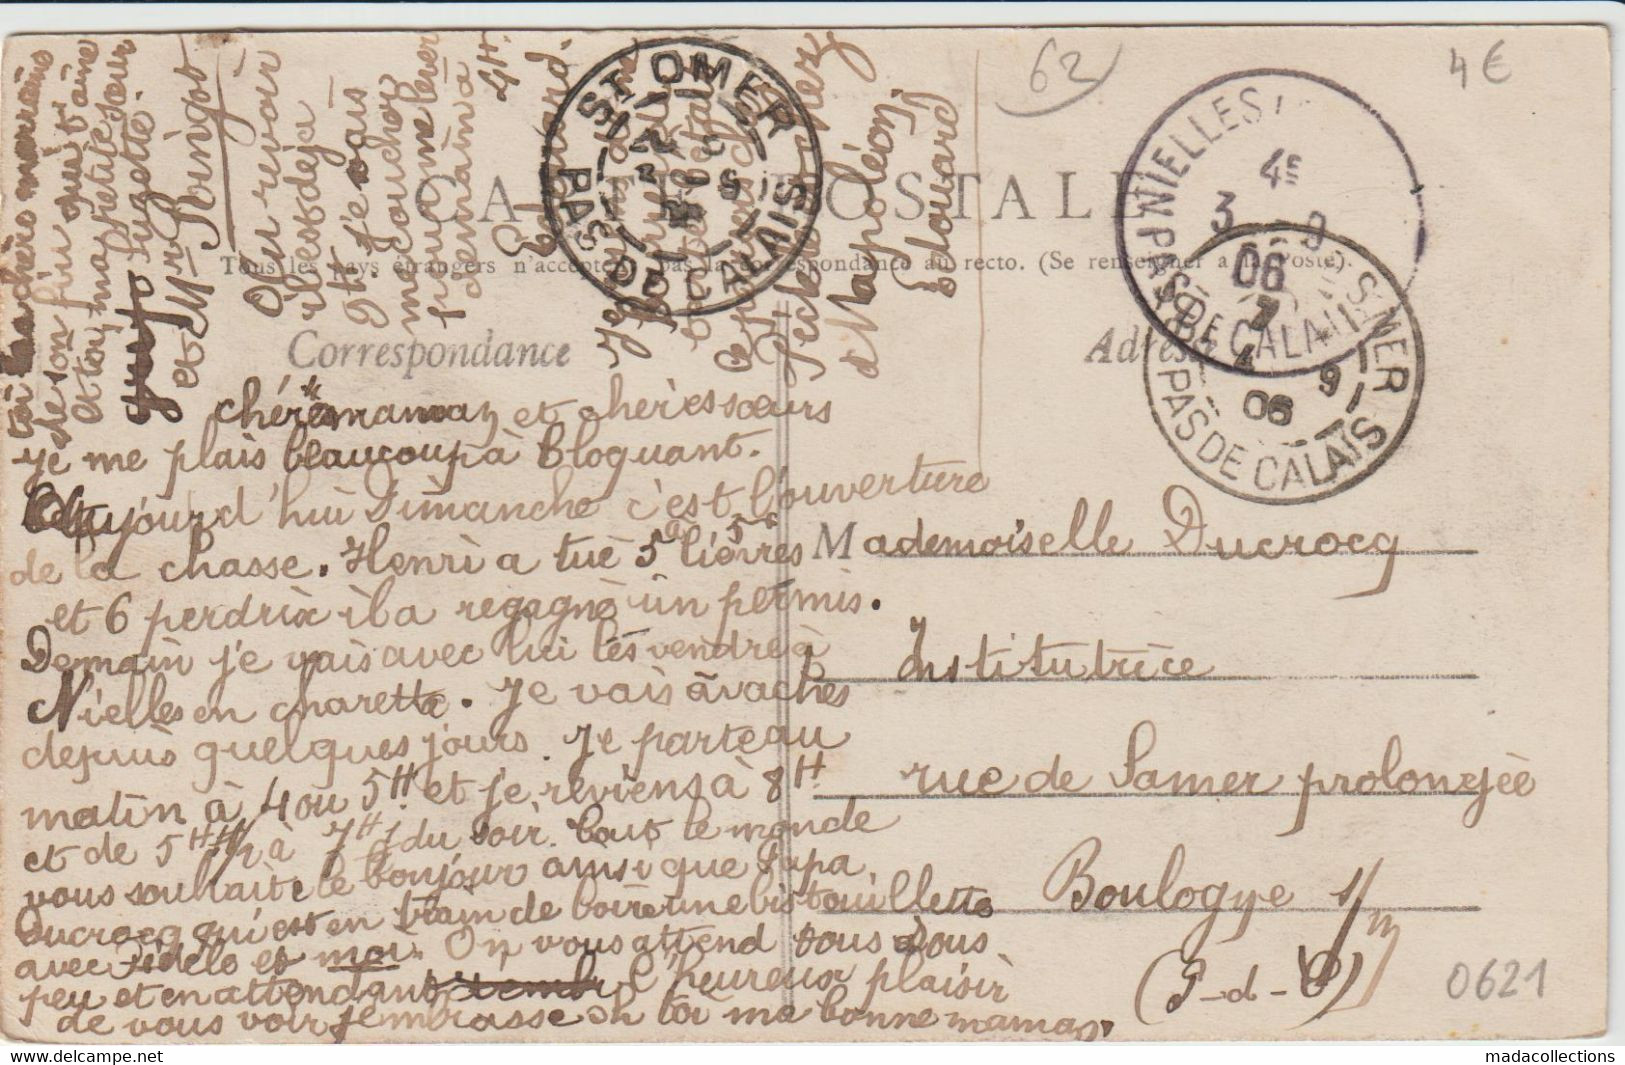 CARTE POSTALE
Tous les pays étrangers n'acceptent pas la correspondance au recto. (Se renseigner à la Poste).
Correspondance
Adresse
62
4€
ST OMER
PAS DE CALAIS
NIELLES
4E
3 9
06
PAS DE CALAIS
7
4 9
06
PAS DE CALAIS
chères maman et chères sœurs
je me plais beaucoup à Bloquant.
Aujourd'hui Dimanche c'est l'ouverture
de la chasse. Henri a tué 5 lièvres
et 6 perdrix il a regagné un permis.
Demain je vais avec lui les vendre à
Nielles en charette. Je vais à vaches
depuis quelques jours. Je parte au
matin à 4 ou 5H et je reviens à 8H
et de 5H à 7H du soir. tout le monde
vous souhaite le bonjour ainsi que Papa
Ducrocq qui est en train de boire une bistouillette
avec Fidèle et moi. On vous attend sous
peu et en attendant l'heureux plaisir
de vous voir j'embrasse toi ma bonne maman.
toi ma chère marraine
de son fieu qui t'aime
et toi, ma petite sœur
Mr Pringot
Au revoir
il est déjà
9H je vais
me coucher
pour me lever
demain à
4H.
Edouard.
à Napoléon,
Edouard
Mademoiselle Ducrocq
Institutrice
rue de Samer prolongée
Boulogne s/m
(P-d-C)
0621
madacollections